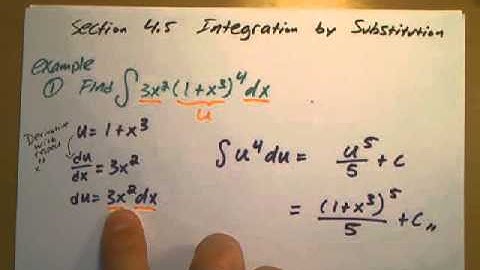 Section 4.5 Integration by Substitution
example
① Find ∫ 3x² (1+x³)⁴ dx
u
Derivative
with
respect
x
u = 1 + x³
du/dx = 3x²
du = 3x² dx
∫ u⁴ du = u⁵/5 + c
= (1+x³)⁵/5 + c,,